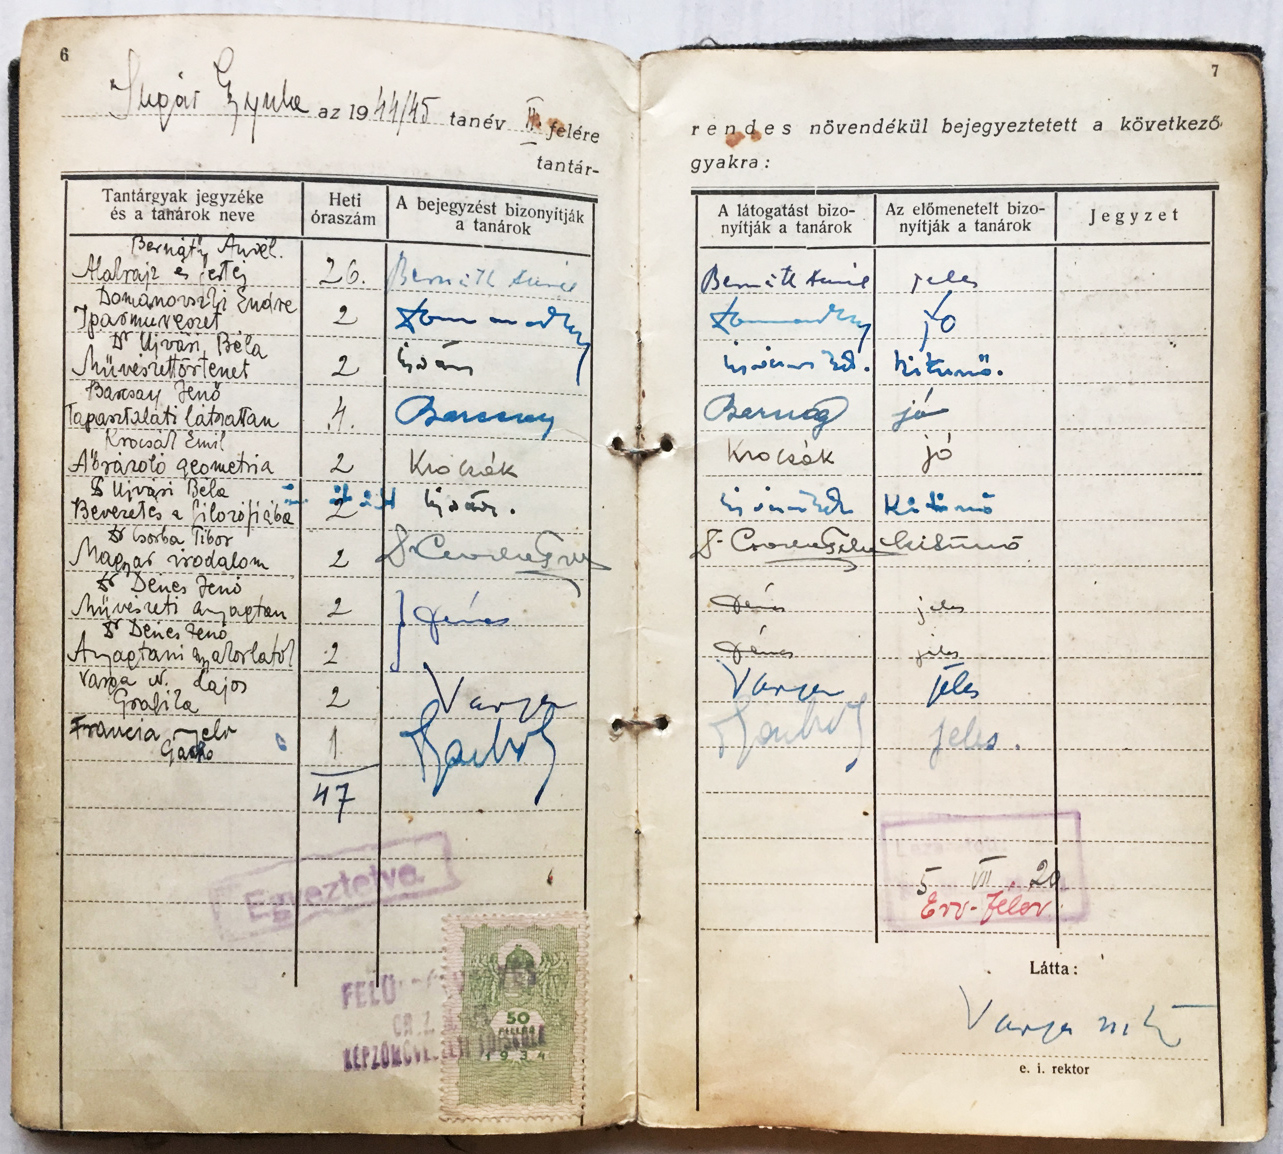 6
Sugár Gyula az 1944/45 tanév II. felére
tantár-
Tantárgyak jegyzéke
és a tanárok neve
Heti
óraszám
A bejegyzést bizonyítják
a tanárok
Bernáth Aurél.
Alakrajz és festés 26. Bernáth Aurél
Domanovszki Endre
Iparművészet 2
Dr Ujvári Béla
Művészettörténet 2 Ujvári
Barcsay Jenő
Tapasztalati látszattan 4. Barcsay
Krocsák Emil
Ábrázoló geometria 2 Krocsák
Dr Ujvári Béla
Bevezetés a filozófiába 2 Ujvári.
Dr Csorba Tibor
Magyar irodalom 2 Dr Csorba Tibor
Dr Dénes Jenő
Művészeti anyagtan 2 Dénes
Dr Dénes Jenő
Anyagtani gyakorlatok 2
Varga N. Lajos
Grafika 2 Varga
Francia nyelv 1
47
Egyeztetve.
50
1934
KÉPZŐMŰVÉSZETI FŐISKOLA
7
rendes növendékül bejegyeztetett a következő
gyakra:
A látogatást bizo-
nyítják a tanárok
Az előmenetelt bizo-
nyítják a tanárok
Jegyzet
Bernáth Aurél jeles
jó
Ujvári Béla. kitünő.
Barcsay jó
Krocsák jó
Ujvári Béla Kitünő
Dr Csorba Tibor kitünő
Dénes jeles
Dénes jeles
Varga jeles
jeles.
5 VII 20
Érv. félév.
Látta:
Varga N. L.
e. i. rektor